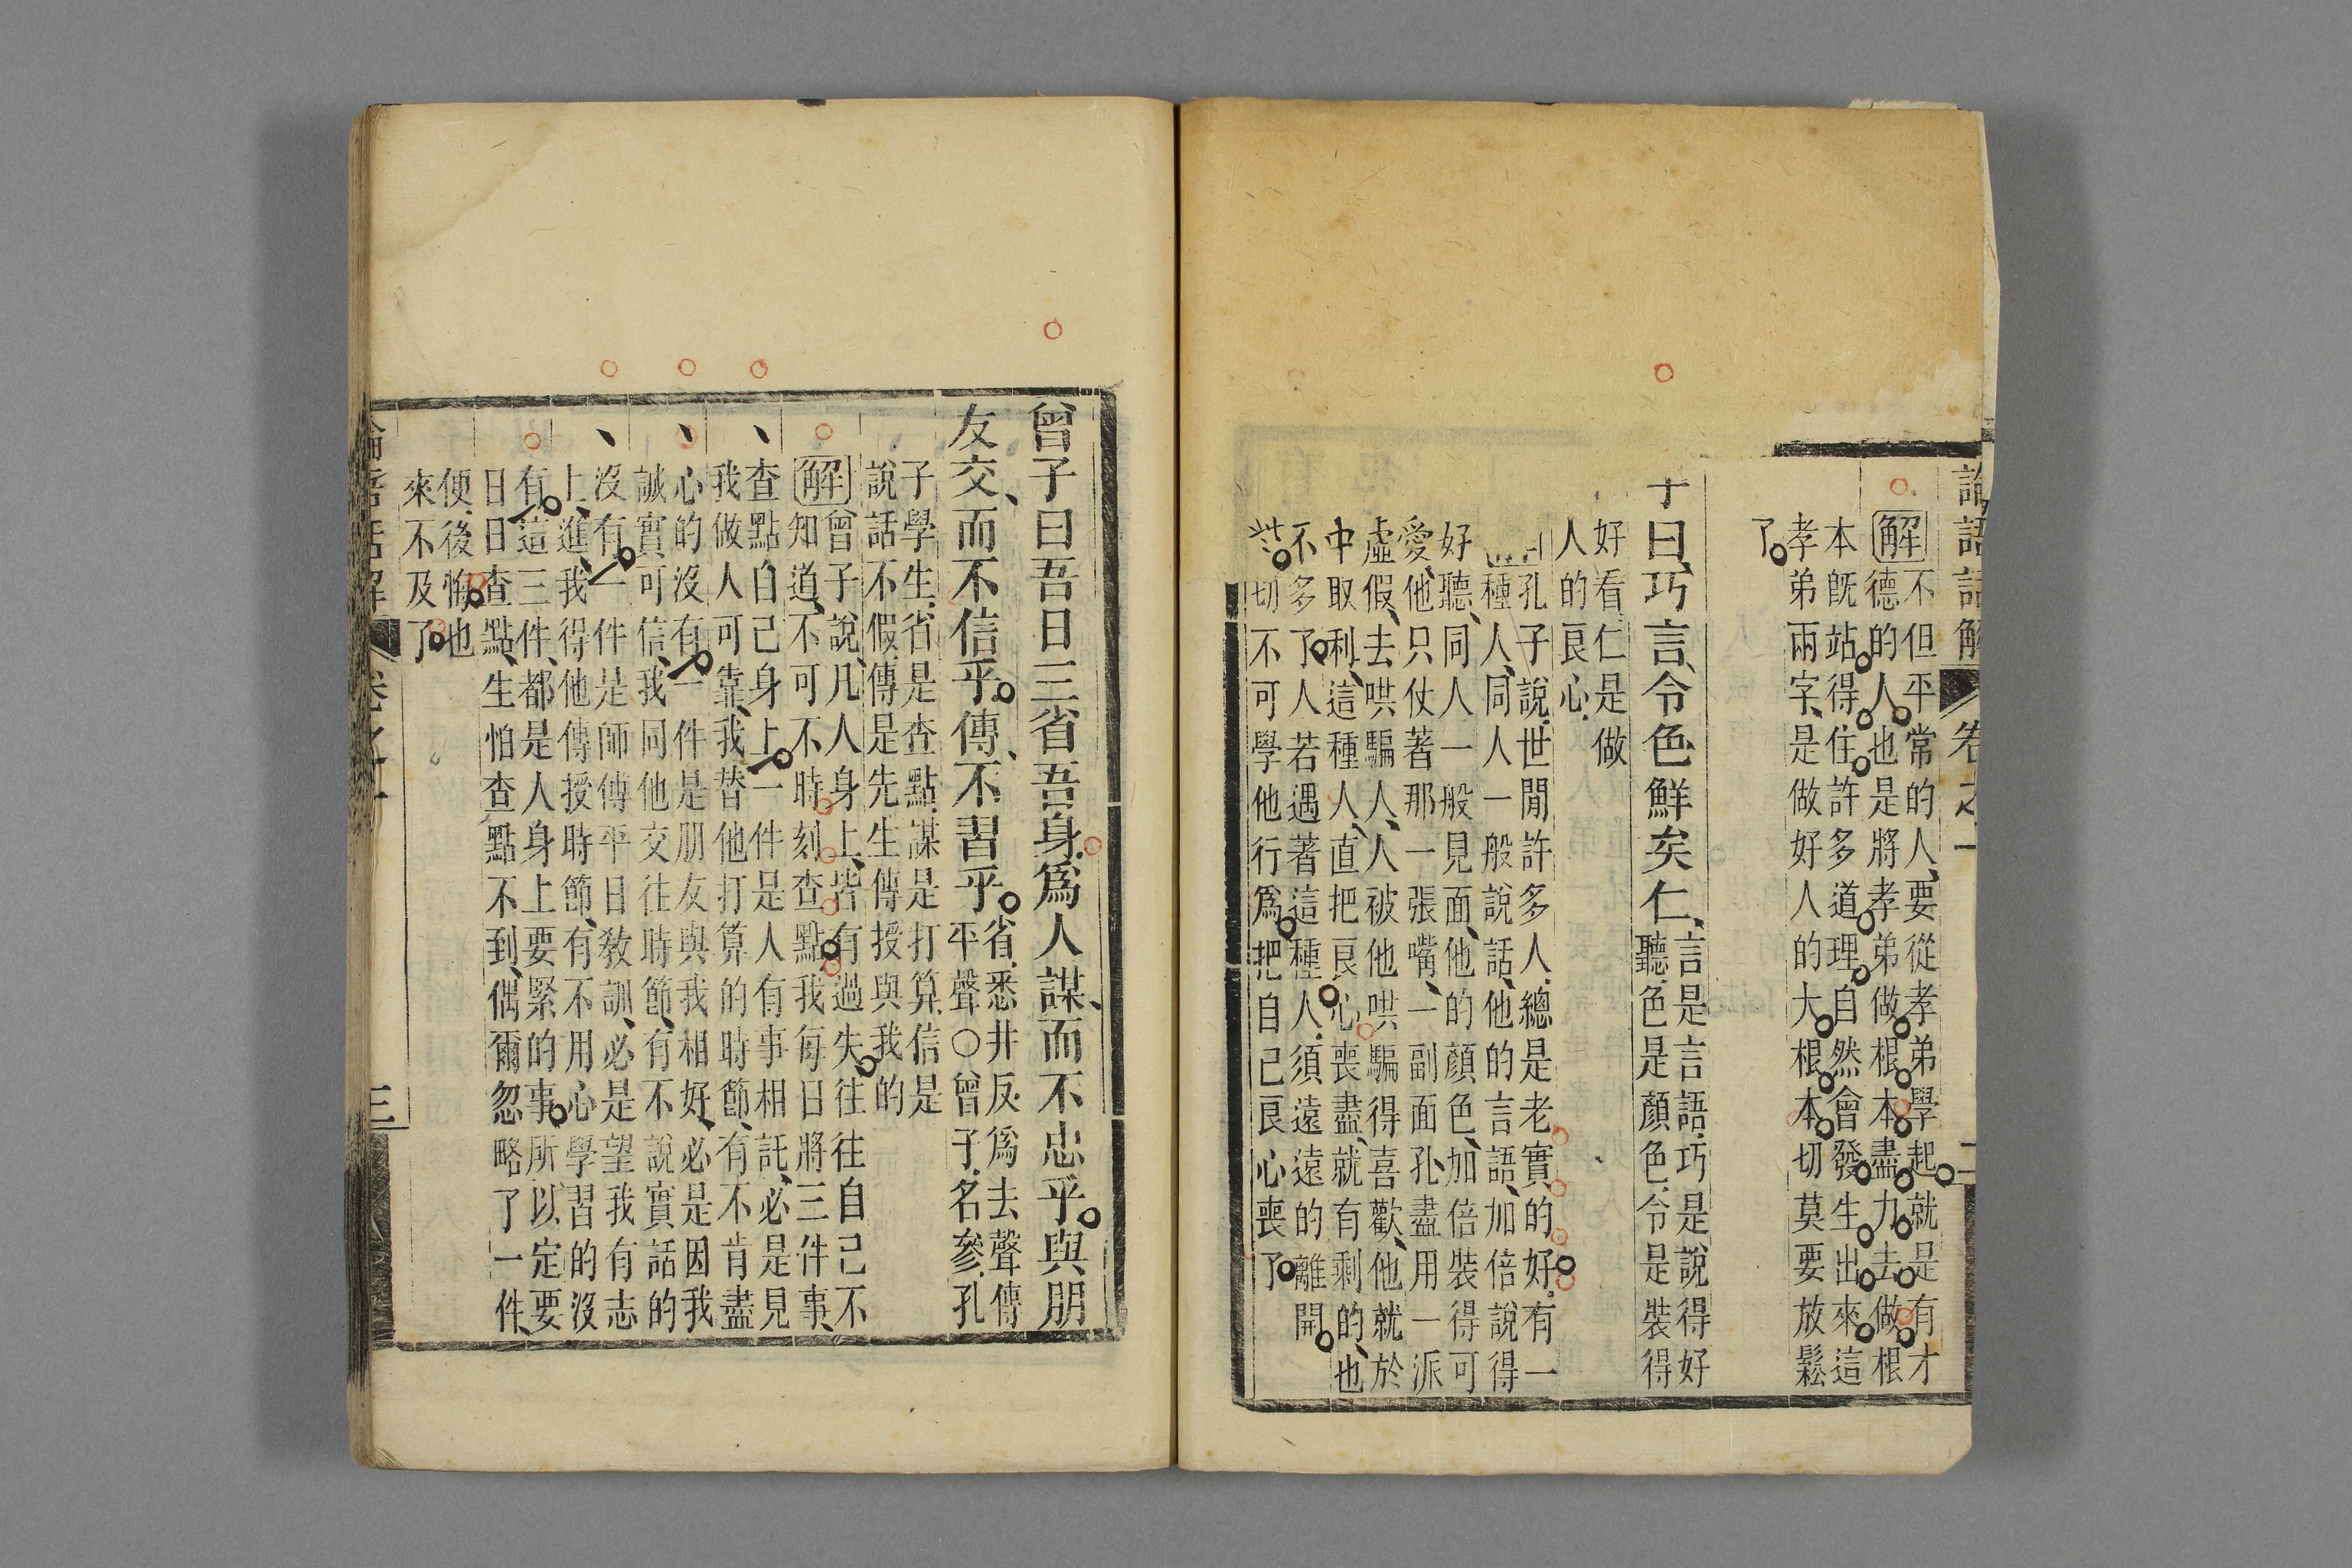 論語話解 卷之一 二
解 不但平常的人、要從孝弟學起。就是有才
德的人。也是將孝弟做根本。盡力去做。根
本既站得住。許多道理。自然會發生出來。這
孝弟兩字、是做好人的大根本。切莫要放鬆
了。
子曰、巧言、令色、鮮矣仁、
言是言語、巧是說得好
聽、色是顏色、令是裝得
好看、仁是做
人的良心、
孔子說、世閒許多人、總是老實的好。有一
種人、同人一般說話、他的言語、加倍說得
好聽、同人一般見面、他的顏色、加倍裝得可
愛、他只仗著那一張嘴、一副面孔、盡用一派
虛假、去哄騙人、人被他哄騙得喜歡、他就於
中取利、這種人、直把良心喪盡、就有剩的、也
不多了。人若遇著這種人、須遠遠的離開。
切不可學他行爲。把自己良心喪了。
曾子曰吾日三省吾身、爲人謀、而不忠乎。與朋
友交、而不信乎。傳、不習乎。
省、悉井反、爲去聲傳
平聲○曾子、名參、孔
子學生、省是查點、謀是打算、信是
說話不假、傳是先生傳授與我的
解 曾子說、凡人身上、皆有過失。往往自己不
知道、不可不時刻查點。我每日將三件事、
查點自己身上。一件是人有事相託、必是見
我做人可靠、我替他打算的時節、有不肯盡
心的沒有。一件是朋友與我相好、必是因我
誠實可信、我同他交往時節、有不說實話的
沒有。一件是師傅平日教訓、必是望我有志
上進、我得他傳授時節、有不用心學習的沒
有。這三件、都是人身上要緊的事。所以定要
日日查點、生怕查點不到、偶爾忽略了一件、
便後悔也
來不及了。
論語話解 卷之一 三